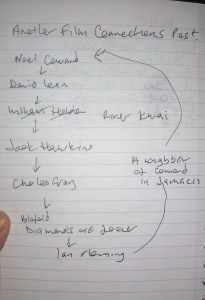 Another Film Connections Post.
Noel Coward
David Lean
William Holden River Kwai
Jack Hawkins
Charles Gray
Blofeld
Diamonds are forever
Ian Fleming
A neighbor
of Coward
in Jamaica